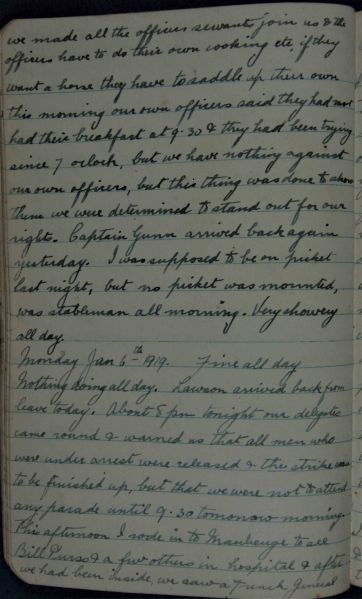 we made all the officers servants join us & the
officers have to do their own cooking etc, if they
want a horse they have to saddle up their own
this morning our own officers said they had not
had their breakfast at 9.30 & they had been trying
since 7 oclock, but we have nothing against
our own officers, but this thing was done to show
them we were determined to stand out for our
rights. Captain Gunn arrived back again
yesterday. I was supposed to be on picket
last night, but no picket was mounted,
was stableman all morning. Very showery
all day.
Monday Jan 6th 1919. Fine all day
Nothing doing all day. Lawson arrived back from
leave today. About 8 pm tonight our delegates
came round & warned us that all men who
were under arrest were released & the strike was
to be finished up, but that we were not to attend
any parade until 9.30 tomorrow morning.
This afternoon I rode in to Maubeuge to see
Bill Purss & a few others in hospital & after
we had been inside, we saw a French General